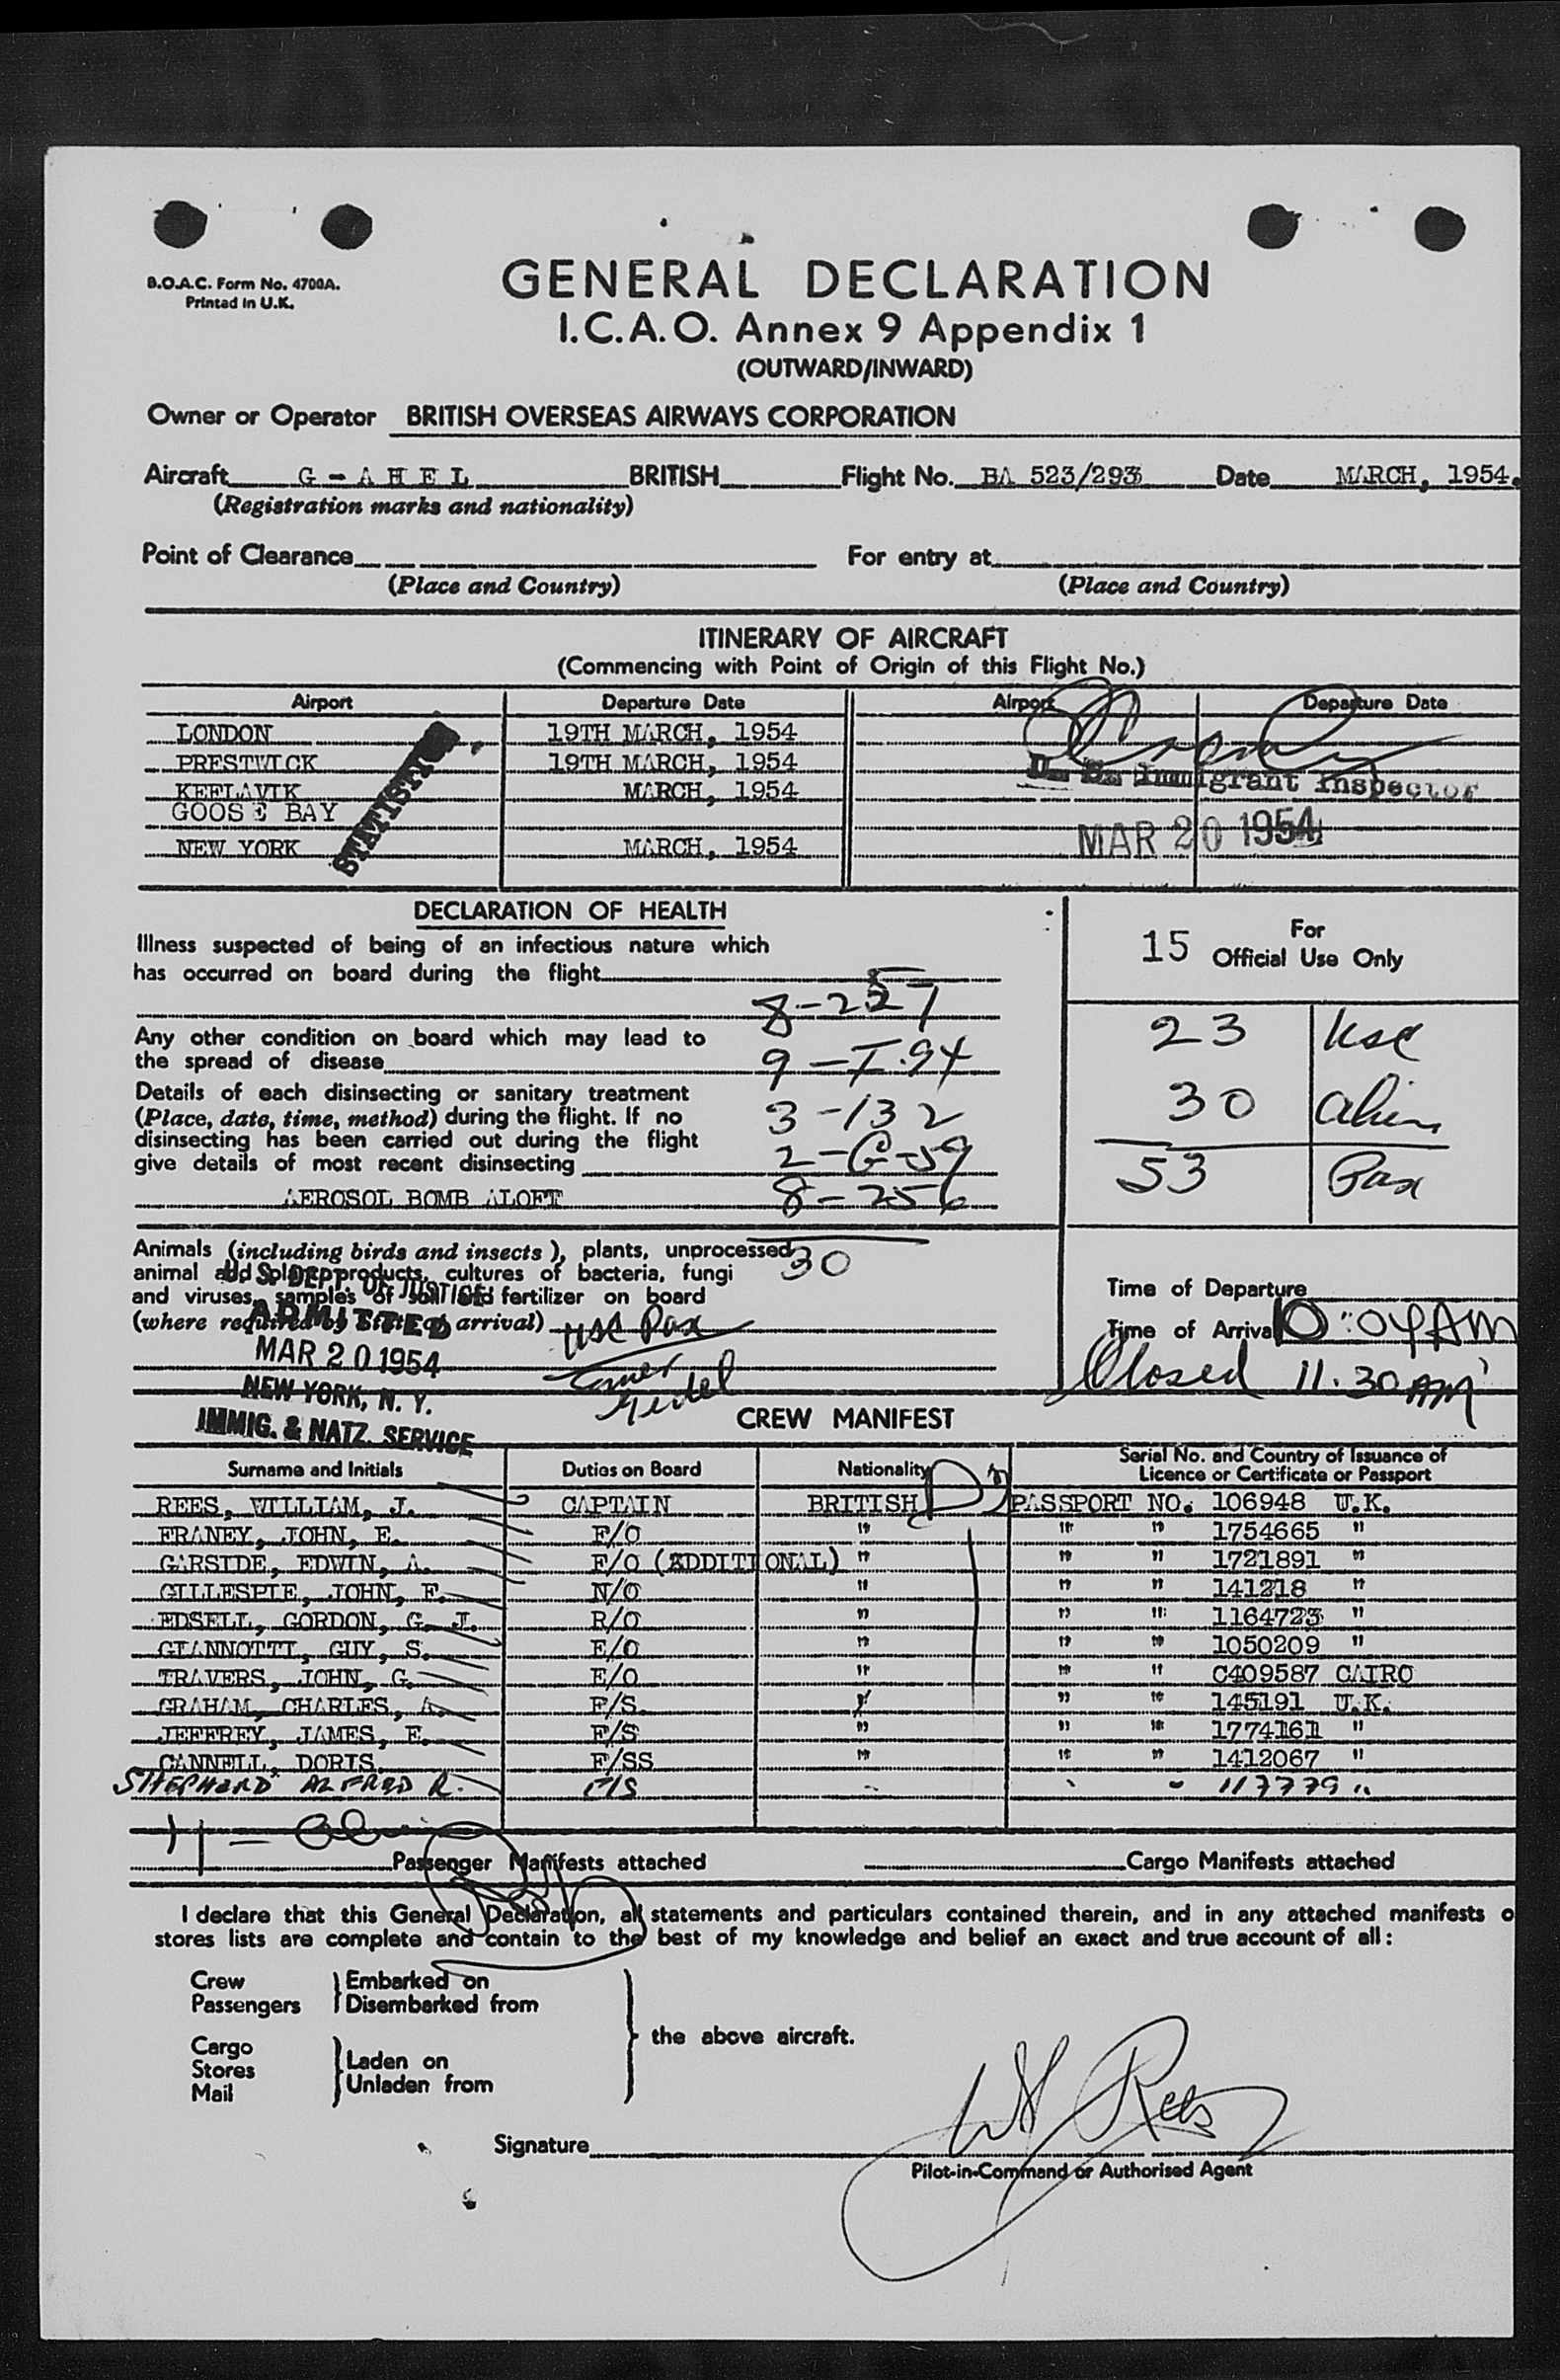 B.O.A.C. Form No. 4700A.
Printed in U.K.
GENERAL DECLARATION
I.C.A.O. Annex 9 Appendix 1
(OUTWARD/INWARD)
Owner or Operator BRITISH OVERSEAS AIRWAYS CORPORATION
Aircraft G - A H E L BRITISH Flight No. BA 523/293 Date MARCH, 1954.
(Registration marks and nationality)
Point of Clearance For entry at
(Place and Country) (Place and Country)
ITINERARY OF AIRCRAFT
(Commencing with Point of Origin of this Flight No.)
Airport Departure Date Airport Departure Date
LONDON 19TH MARCH, 1954
PRESTWICK 19TH MARCH, 1954
KEFLAVIK MARCH, 1954
GOOSE BAY
NEW YORK MARCH, 1954
STATISTICS
U. S. Immigrant Inspector
MAR 20 1954
DECLARATION OF HEALTH
Illness suspected of being of an infectious nature which
has occurred on board during the flight
8-227
Any other condition on board which may lead to
the spread of disease 9-I-94
Details of each disinsecting or sanitary treatment
(Place, date, time, method) during the flight. If no 3-132
disinsecting has been carried out during the flight
give details of most recent disinsecting 2-G-59
AEROSOL BOMB ALOFT 8-256
30
15 For
Official Use Only
23 usc
30 alien
53 Pax
Animals (including birds and insects), plants, unprocessed
animal and plant products, cultures of bacteria, fungi
and viruses, samples of soil and fertilizer on board
(where required by State of arrival) USC Pax
U. S. DEPT. OF JUSTICE
ADMITTED
MAR 20 1954
NEW YORK, N. Y.
IMMIG. & NATZ. SERVICE
Time of Departure
Time of Arrival 10:04 AM
Closed 11.30 AM
CREW MANIFEST
Surname and Initials Duties on Board Nationality Serial No. and Country of Issuance of
Licence or Certificate or Passport
REES, WILLIAM, J. CAPTAIN BRITISH PASSPORT NO. 106948 U.K.
FRANEY, JOHN, E. F/O " " " 1754665 "
GARSIDE, EDWIN, A. F/O (ADDITIONAL) " " " 1721891 "
GILLESPIE, JOHN, F. N/O " " " 141218 "
EDSELL, GORDON, G. J. R/O " " " 1164723 "
GIANNOTTI, GUY, S. E/O " " " 1050209 "
TRAVERS, JOHN, G. E/O " " " C409587 CAIRO
GRAHAM, CHARLES, A. F/S. " " " 145191 U.K.
JEFFREY, JAMES, E. F/S " " " 1774161 "
CANNELL, DORIS. F/SS " " " 1412067 "
SHEPHERD ALFRED R. F/S " " " 117779 "
11 -
Passenger Manifests attached Cargo Manifests attached
I declare that this General Declaration, all statements and particulars contained therein, and in any attached manifests o
stores lists are complete and contain to the best of my knowledge and belief an exact and true account of all:
Crew Embarked on
Passengers Disembarked from
the above aircraft.
Cargo
Stores Laden on
Mail Unladen from
Signature WJ Rees
Pilot-in-Command or Authorised Agent